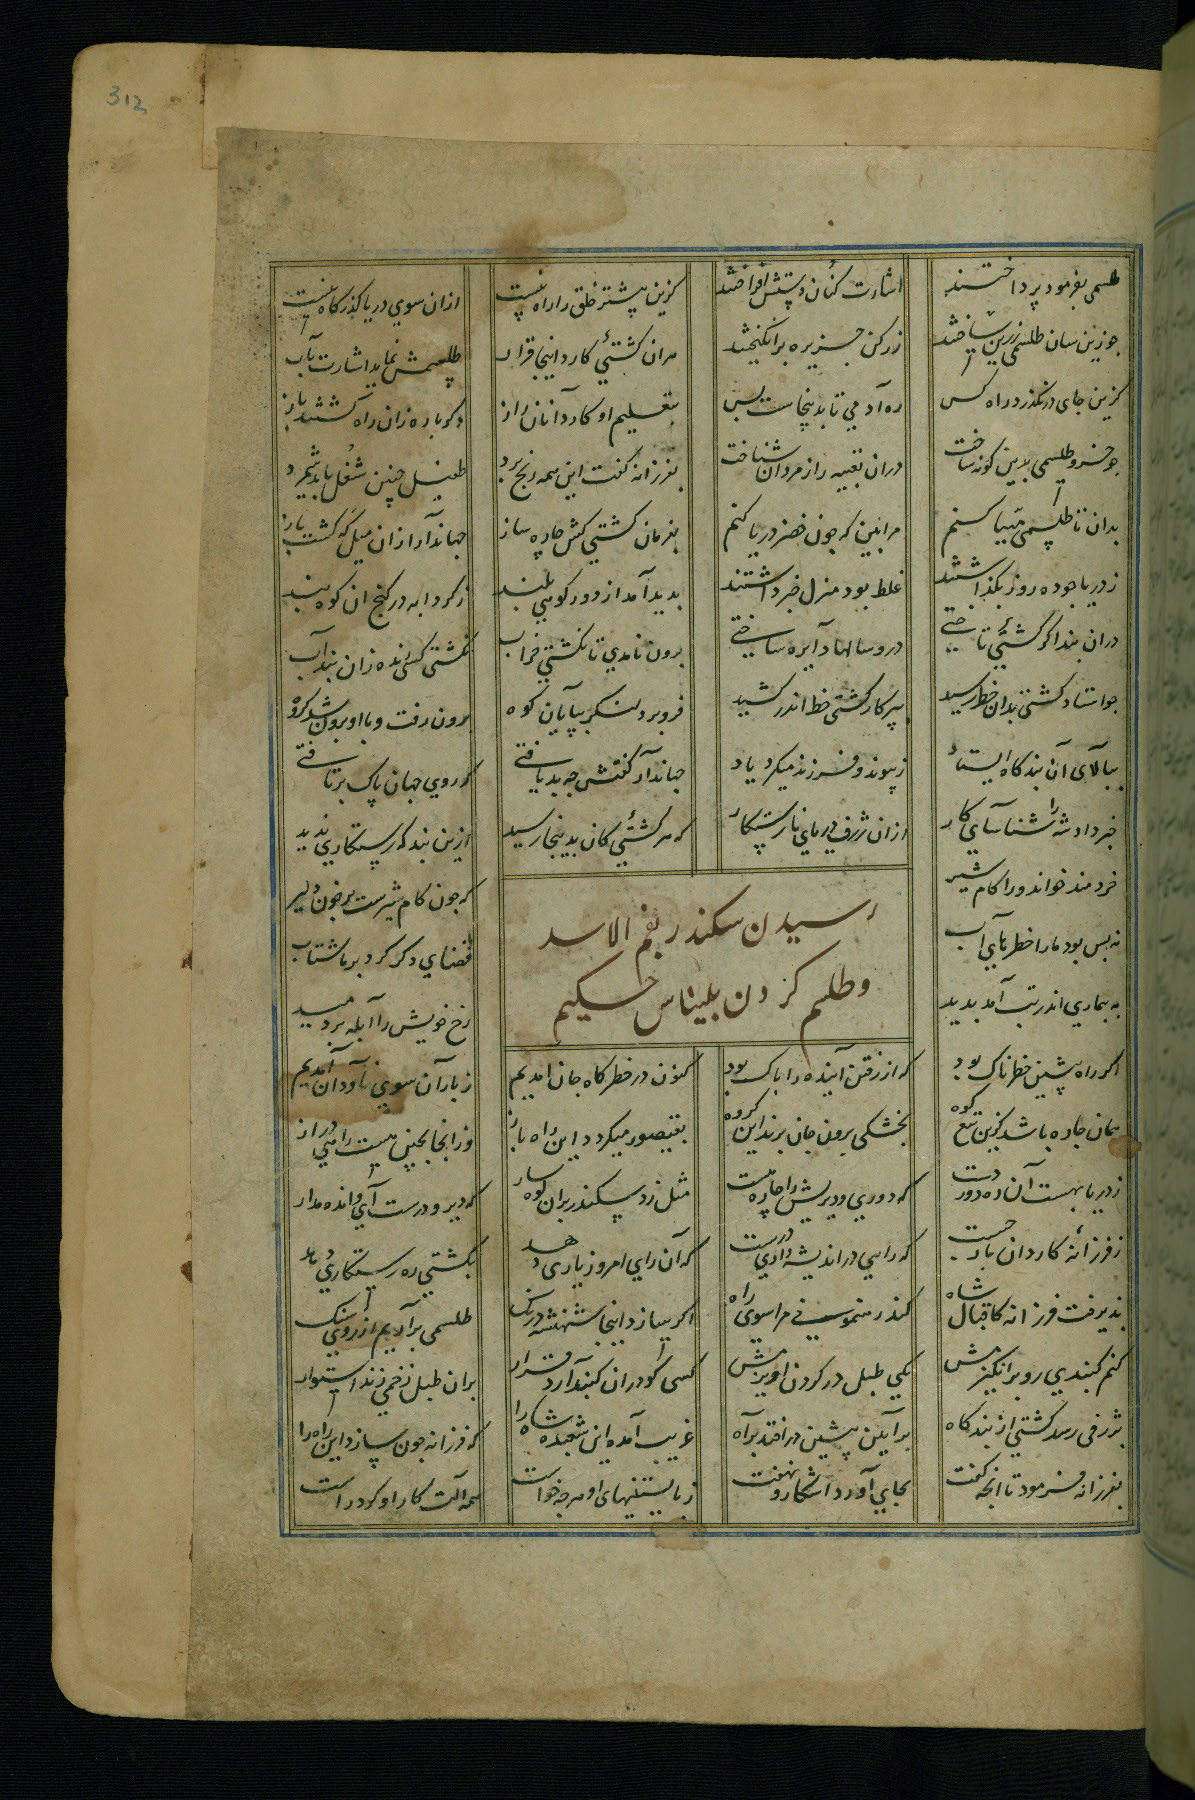 312
طلسمی بفرمود پرداختند اشارت کنان دستش افراختند کزین پیشتر خلق را راه نیست ازان سوی دریا گذرگاه نیست
چو زین سان طلسمی زرین ساختند ز رکن جزیره برانگیختند هران کشتیی کارد اینجا قرار طلسمش نماید اشارت بآب
کزین جای در نگذرد راه کس ره آدمی تا بدینجاست بس بتعلیم او کاردانان راز دگر باره زان راه گشتند باز
چو خسرو طلسمی بدین گونه ساخت دران تعبیه راز مردان شناخت بفرزانه گفت این همه رنج برد طفیل چنین شغل باید شمرد
بدان تا طلسمی مهیا کنم مرا بین که چون خضر دریا کنم بفرمان کشتی کش چاره ساز جهاندار ازان میل گه گشت باز
ز دریا چو ده روز بگذاشتند غلط بود منزل خبر داشتند بدید آمد از دور کوهی بلند ز گردابه در کنج ان کوه بند
دران بند اگر کشتیی تاختی درو سالها دایره ساختی برون نامدی تا نگشتی خراب نگشتی کسی زنده زان بند آب
چو استاد کشتی بدان خط رسید پرکار کشتی خط اندر کشید فرو برد لنگر بپایان کوه برون رفت و با او برون شد گروه
ببالای آن بندگاه ایستاد ز پیوند و فرزند میکرد یاد جهاندار گفتش چه بد یافتی که روی جهان پاک برتافتی
خبر داد شه را شناسای کار ازان ژرف دریای نارستکار که هر کشتیی کان بدینجا رسید ازین بند گه رستگاری ندید
خردمند خواند ورا کام شیر که چون کام شیرست بر خون دلیر
نه بس بود ما را خطرهای آب قضای دگر کرد بر ما شتاب
به بیماری اندر تب آمد پدید رخ خویش را آبله بردمید
رسیدن سکندر بفم الاسد
و طلسم کردن بلیناس حکیم
اگر راه پیشین خطرناک بود که از رفتن آینده را باک بود کنون در خطرگاه جان آمدیم ز باران سوی ناودان آمدیم
همان چاره باشد کزین تیغ کوه بخشکی برون جان برند این گروه بقیصور میگردد این راه باز وز انجا بچین هست راهی دراز
ز دریا بهست آن ره دوردست که دوری و دیریش را چاره هست مثل زد سکندر بران کوهسار که دیر و درست آی و انده مدار
ز فرزانه کاردان باز جست که رایی در اندیشه داری درست که آن رای امروز یاری دهد بکشتی ره رستگاری دهد
پذیرفت فرزانه کاقبال شاه کند رهنمونی مرا سوی راه اگر سازد اینجا شهنشه درنگ طلسمی برآریم از روی سنگ
کنم گنبدی رو برانگیزمش یکی طبل در گردن اویزمش کسی کو دران گنبد آرد قرار بران طبل زخمی زند استوار
بژرفی رسد کشتی از بندگاه بر آیین پیشین در افتد براه غریب آمد این شعبده شاه را که فرزانه چون سازد این راه را
بفرزانه فرمود تا انچه گفت بجای آورد اشکار و نهفت ز بایستنیهای او هر چه خواست همه آلت کار او کرد راست